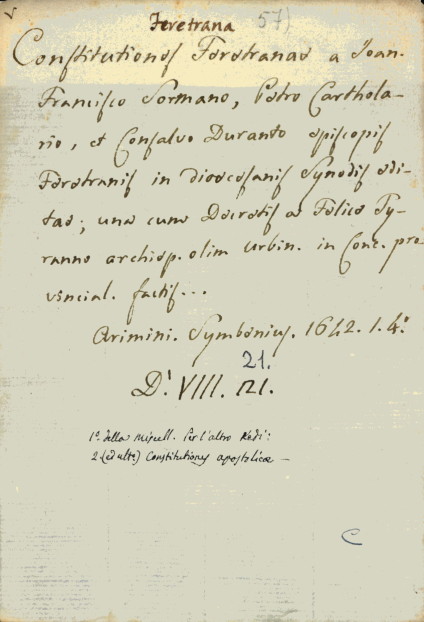 v
Feretrana 57)
Constitutiones Feretranae a Joan.
Francisco Sormano, Petro Carthola-
rio, et Consalvo Duranto episcopis
Feretranis in dioecesanis Synodis edi-
tae; una cum Decretis a Felice Ty-
ranno archiep. olim Urbin. in Conc. pro-
vincial. factis...
Arimini. Symbenius. 1642. 1. 4.º
21.
D.' VIII.
1º della Miscell. Per l'altro Vedi:
2 (ed altre) Constitutiones apostolicae —
C